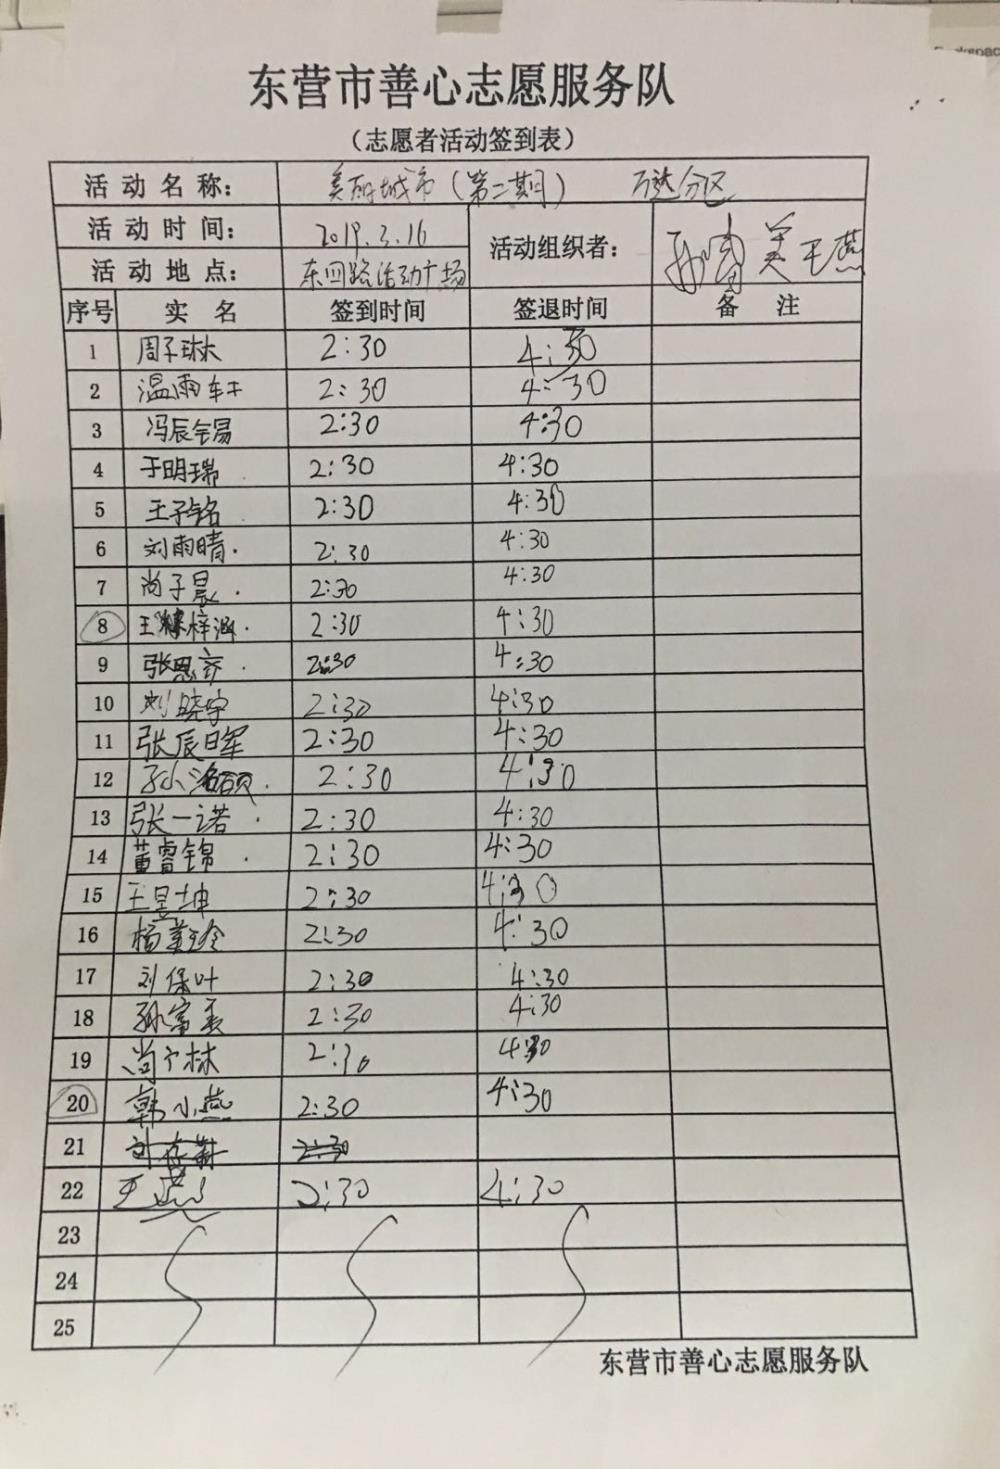 东营市善心志愿服务队
（志愿者活动签到表）
活动名称： 美丽城市（第二期） 万达分区
活动时间： 2019.3.16 活动组织者： 孙富美 王燕
活动地点： 东四路活动广场
序号 实名 签到时间 签退时间 备注
1 周子琳 2:30 4:30
2 温雨轩 2:30 4:30
3 冯辰锡 2:30 4:30
4 于明瑞 2:30 4:30
5 王子铭 2:30 4:30
6 刘雨晴. 2:30 4:30
7 尚子晨. 2:30 4:30
8 王梓涵. 2:30 4:30
9 张思齐. 2:30 4:30
10 刘晓宇 2:30 4:30
11 张辰晖 2:30 4:30
12 孙洺硕. 2:30 4:30
13 张一诺. 2:30 4:30
14 董睿锦. 2:30 4:30
15 王昱坤 2:30 4:30
16 杨美玲 2:30 4:30
17 刘保叶 2:30 4:30
18 孙富美 2:30 4:30
19 尚广林 2:30 4:30
20 韩小燕 2:30 4:30
21 2:30
22 王燕 2:30 4:30
23
24
25
东营市善心志愿服务队